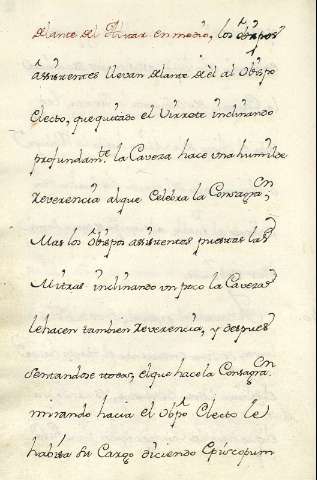 delante del Altar en medio, los Obispos
Assistentes llevan delante de èl al Obispo
Electo, que quitado el Virrete inclinando
profundam.te la Caveza hace una humilde
Reverencia al que Celebra la Consagra.on;
Mas los Obispos assistentes puestas las
Mitras inclinando un poco la Caveza
le hacen tambien Reverencia, y despues
sentandose todos, el que hace la Consagra.on
mirando hacia el Obpo Electo le
habisa su Cargo diciendo Episcopum